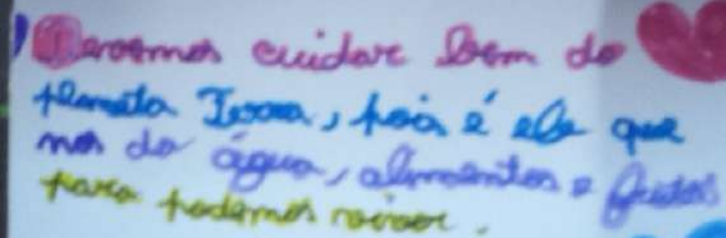 Devemos cuidar bem do
planeta Terra, pois é ele que
nos da água, alimentos e frutos
para podemos viver.